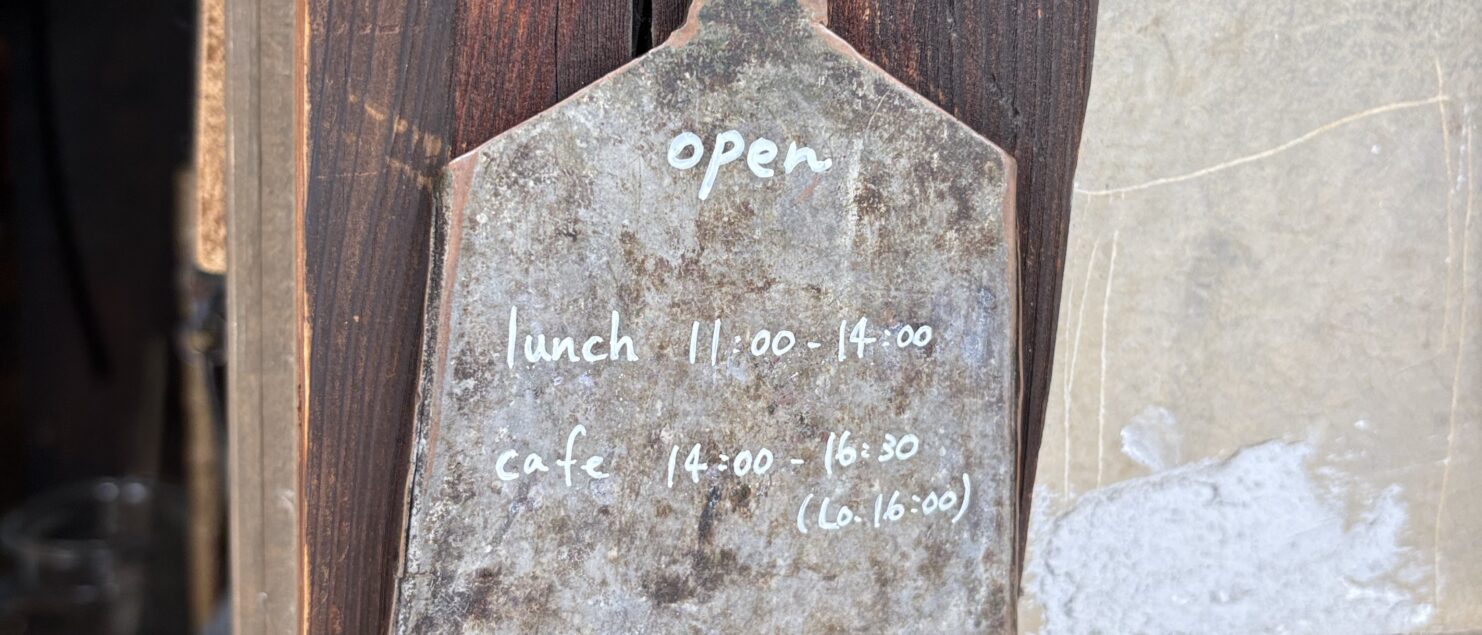 open
lunch 11:00 - 14:00
cafe 14:00 - 16:30
(Lo. 16:00)